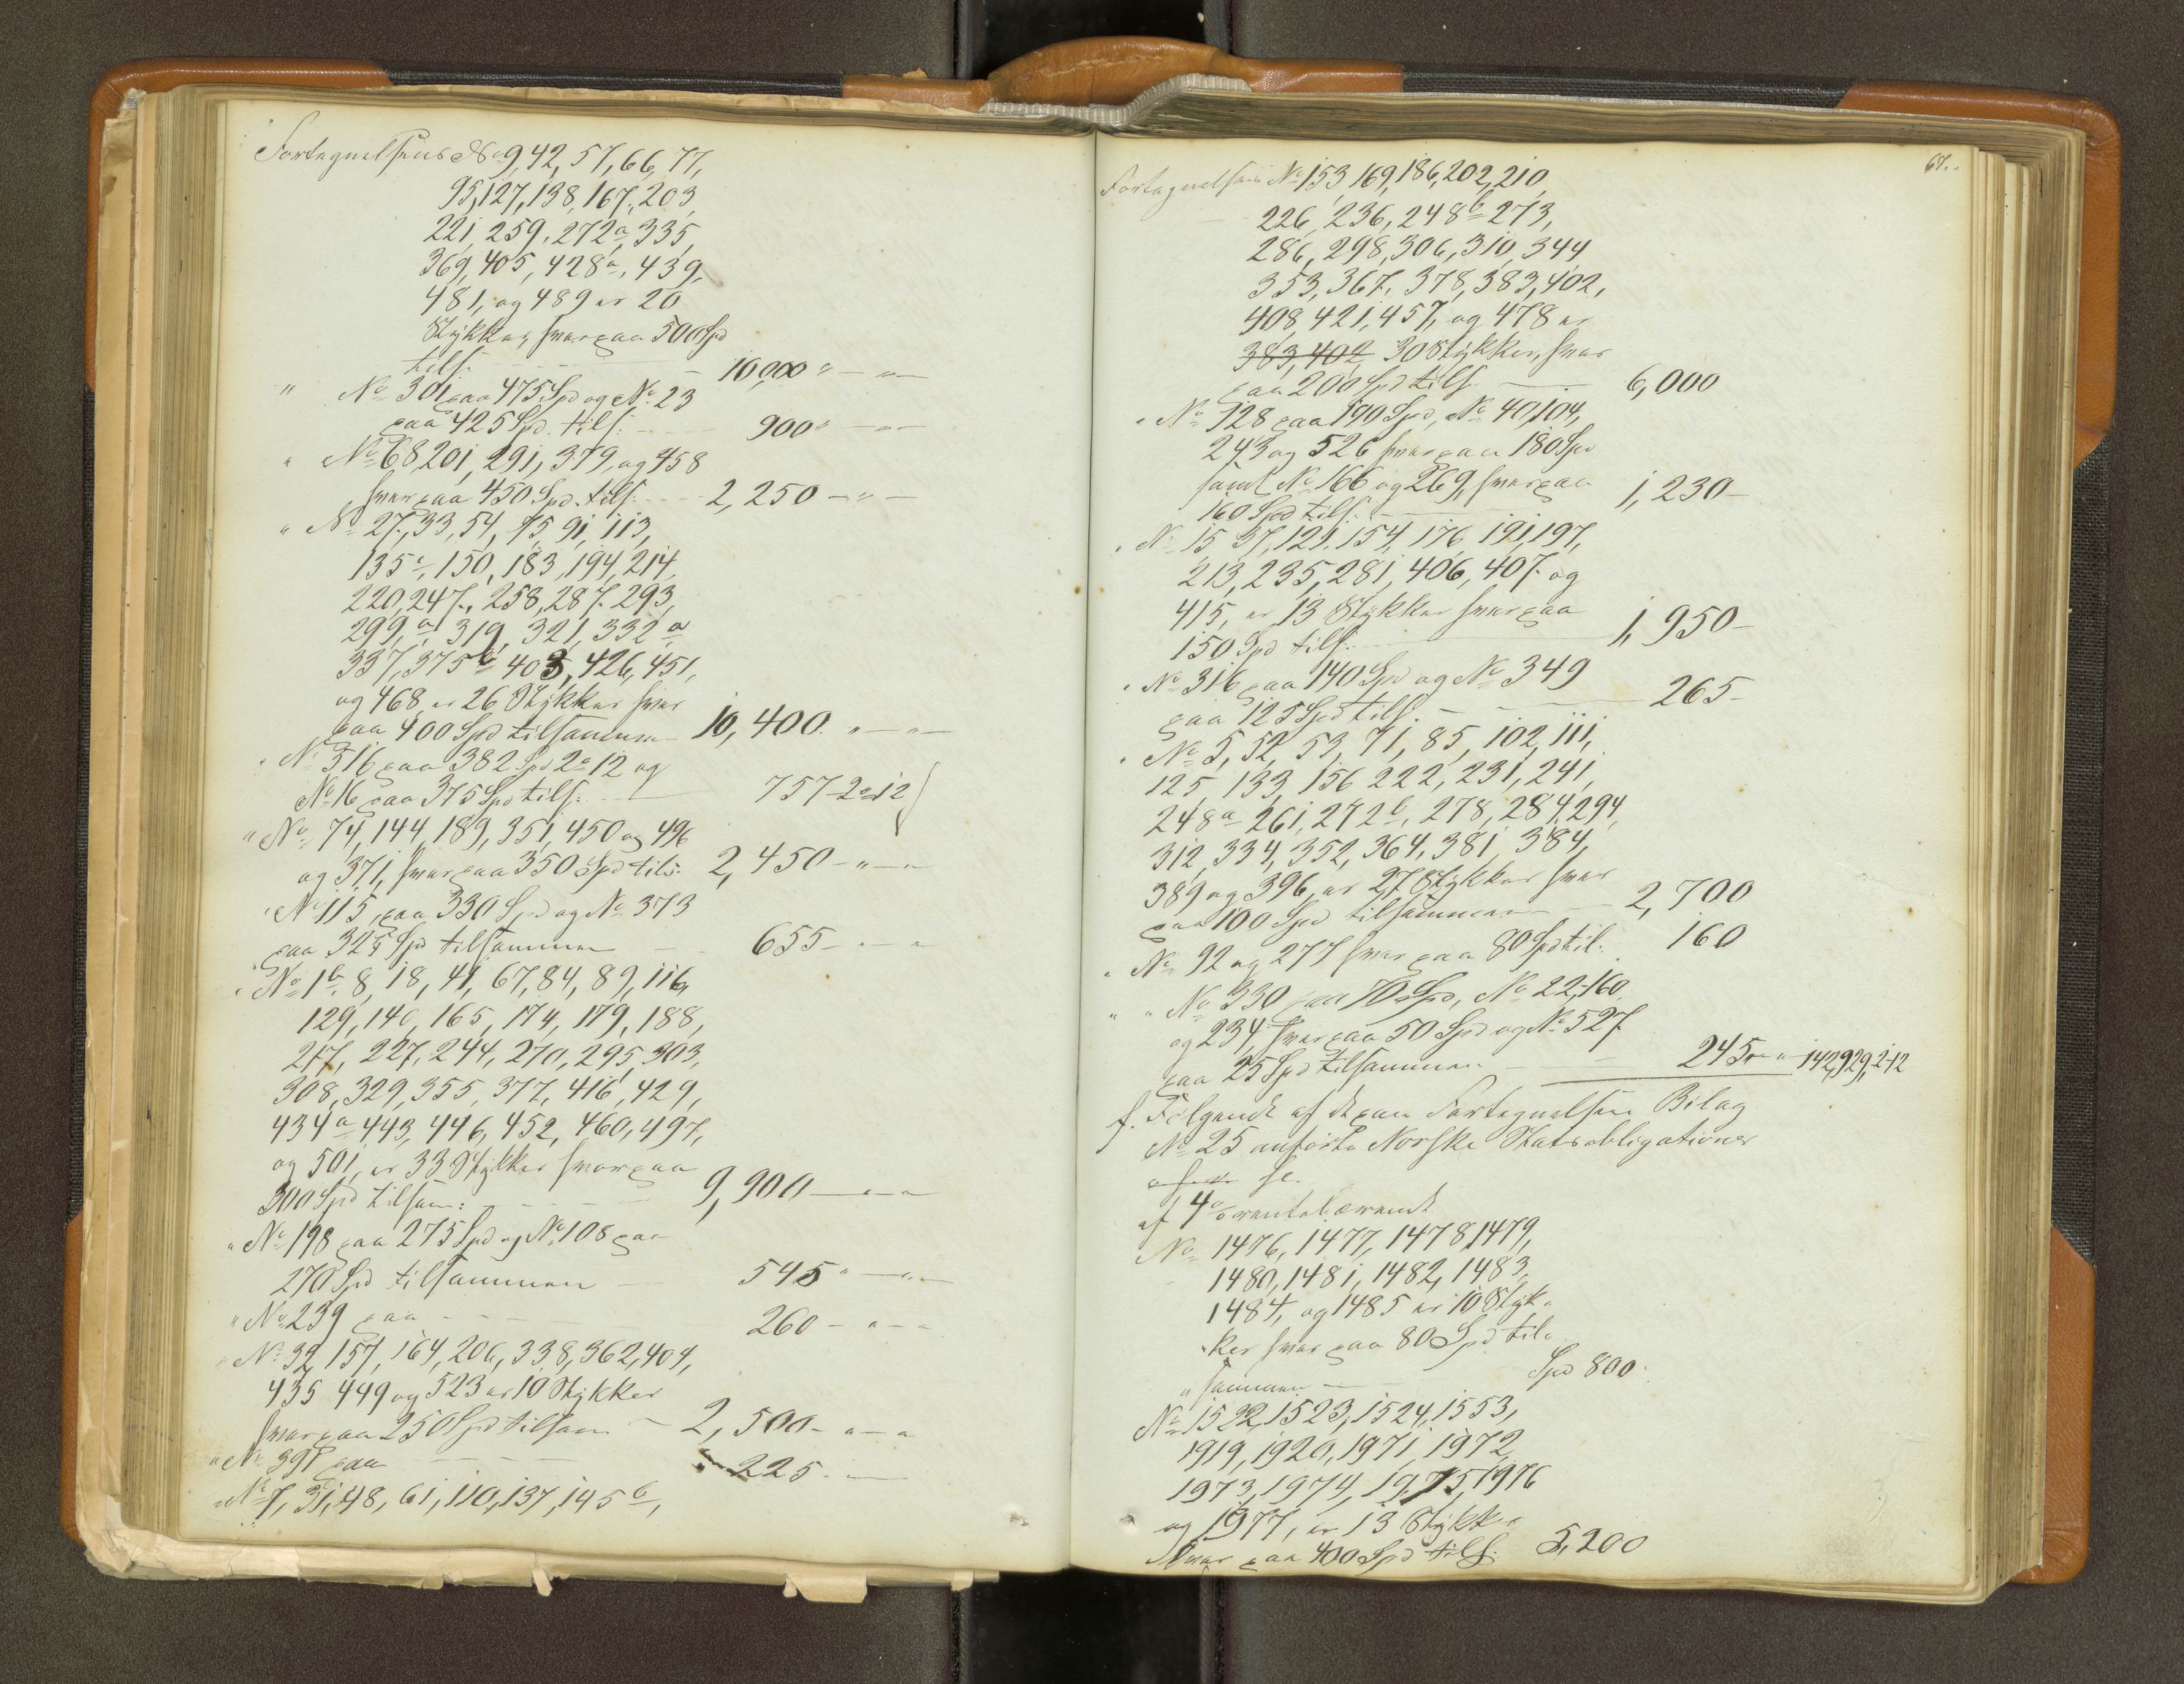 Fortegnelsens No 9, 42, 57, 66, 77,
95, 127, 138, 167, 203,
221, 259, 272a, 335,
369, 405, 428a, 439,
481, og 489 er 20
Stykker, hver paa 500 Spd
tils. — 10,000 " — " —
" No 301 paa 475 Spd og No 23
paa 425 Spd. tils. — 900 " — " —
" No 68, 201, 291, 379, og 458
hver paa 450 Spd. tils. — 2,250 — " —
" No 27, 33, 54, 75, 91, 113,
135a, 150, 183, 194, 214,
220, 247, 258, 287, 293,
299,a 319, 321, 332a
337, 375b, 403, 426, 451,
og 468, er 26 Stykker hver
paa 400 Spd tilsammen 10,400. " — " —
" No 316 paa 382 Spd 2 " 12 og
No 16 paa 375 Spd tils. — 757 - 2 " 12 ʃ
" No 74, 144, 189, 351, 450 og 496
og 371, hver paa 350 Spd tils. 2,450 — " — "
" No 115 paa 330 Spd og No 373
paa 325 Spd tilsammen — 655 — " — "
" No 1b, 8, 18, 41, 67, 84, 89, 116,
129, 140, 165, 174, 179, 188,
217, 227, 244, 270, 295, 303,
308, 329, 355, 377, 416, 429,
434a, 443, 446, 452, 460, 497,
og 501, er 33 Stykker hver paa
300 Spd tilsam: — 9,900 — " — "
" No 198 paa 275 Spd og No 108 paa
270 Spd tilsammen — 545 " — " —
" No 239 paa — 260 — " — "
" No 32, 157, 164, 206, 338, 362, 404,
435 449 og 523 er 10 Stykker
hver paa 250 Spd tilsam — 2,500 — " — "
" No 391 paa — 225 — " —
" No 7, 31, 48, 61, 110, 137, 145b,
67.
Fortegnelsens No 153 169, 186, 202, 210,
226, 236, 248b 273,
286, 298, 306, 310, 344
353, 367, 378, 383, 402,
408, 421, 457, og 478 er
383, 402 30 Stykker, hver
paa 200 Spd tils. — 6,000
" No 128 paa 190 Spd, No 40, 104,
243 og 526 hver paa 180 Spd
samt No 166 og 269, hver paa
160 Spd tils. — 1,230 —
" No 15 37, 121, 154, 176, 191, 197,
213, 235, 281, 406, 407 og
415, er 13 Stykker hver paa
150 Spd tils. — 1,950 —
" No 316 paa 140 Spd og No 349
paa 125 Spd tils. — 265 —
" No 5, 52, 53, 71, 85, 102, 111,
125, 133, 156 222, 231, 241,
248a 261, 272b, 278, 284, 294,
312, 334, 352, 364, 381, 384,
389 og 396, er 27 Stykker hver
paa 100 Spd tilsammen — 2,700
" No 92 og 277 hver paa 80 Spd til. 160
" " No 330 paa 70 Spd, No 22, 160
og 234, hver paa 50 Spd og No 527
paa 25 Spd tilsammen — 245 — " 142,929, 2 - 12
f. Følgende af de paa Fortegnelsen Bilag
No 25 anførte Norske Statsobligationer
se.
af 4 % rentebærende
No 1476, 1477, 1478, 1479,
1480, 1481, 1482, 1483,
1484, og 1485 er 10 Styk-
ker hver paa 80 Spd til-
" sammen — Spd 800
No 1522, 1523, 1524, 1553,
1919, 1920, 1971, 1972,
1973, 1974, 1975, 1976
og 1977, er 13 Stykker
hver paa 400 Spd tils. 5,200